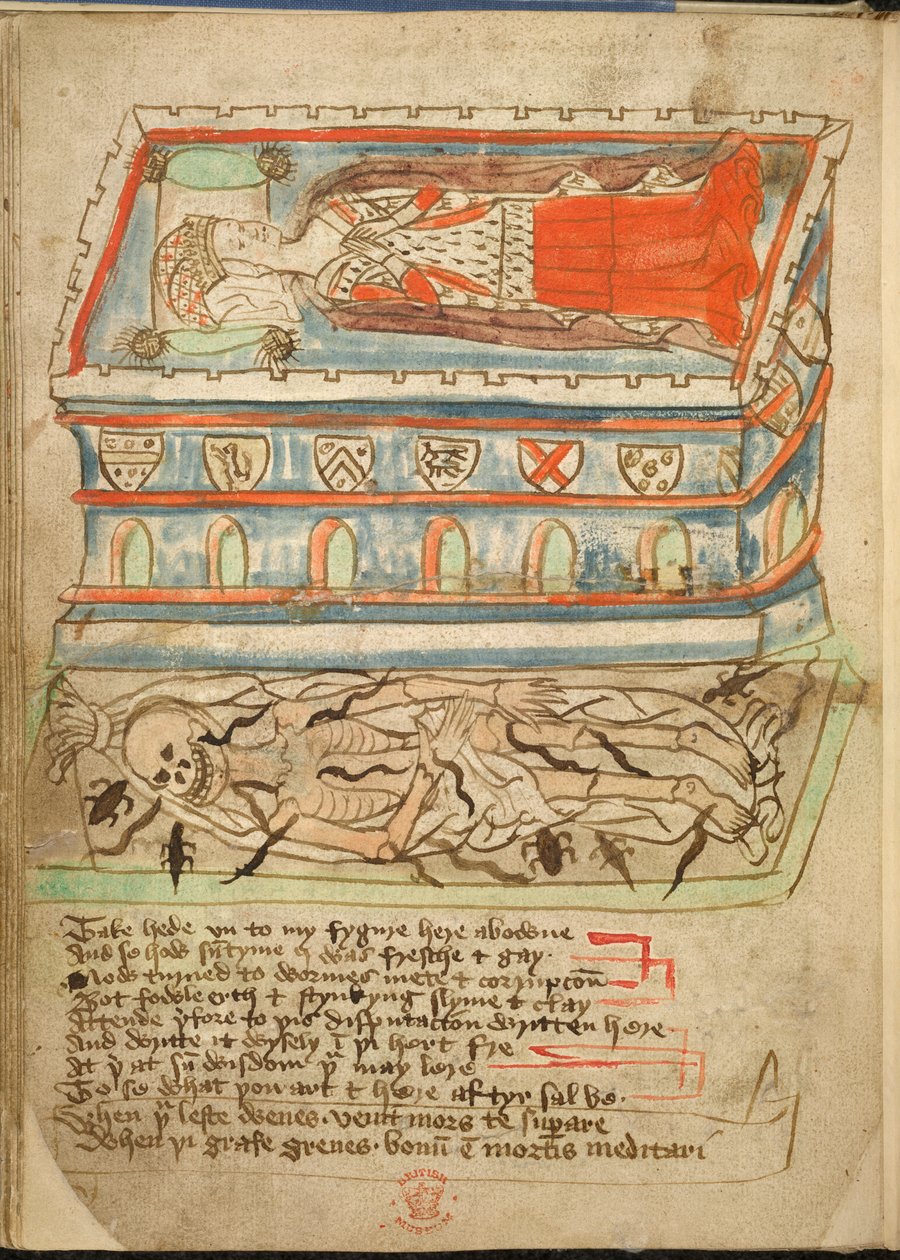 Take hede vn to my fygure here abowne
And se how sūtyme I was fresche & gay.
Now turned to wormes mete & corrupcoū
Bot fowle erth & stynkyng slyme & clay
Attende þfore to þis disputacion written here
And writte it wysely ī þi hert fre
At þ at sū wisdom þu may lere
To se what þou art & here aftyr sal be.
When þu leste wenes. venit mors te supare
When þi grafe greues. bonū ē mortis meditari
BRITISH
MUSEUM